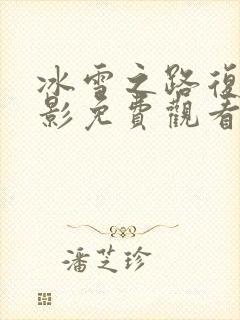 冰雪之路復
影免費觀看
潘芝珍